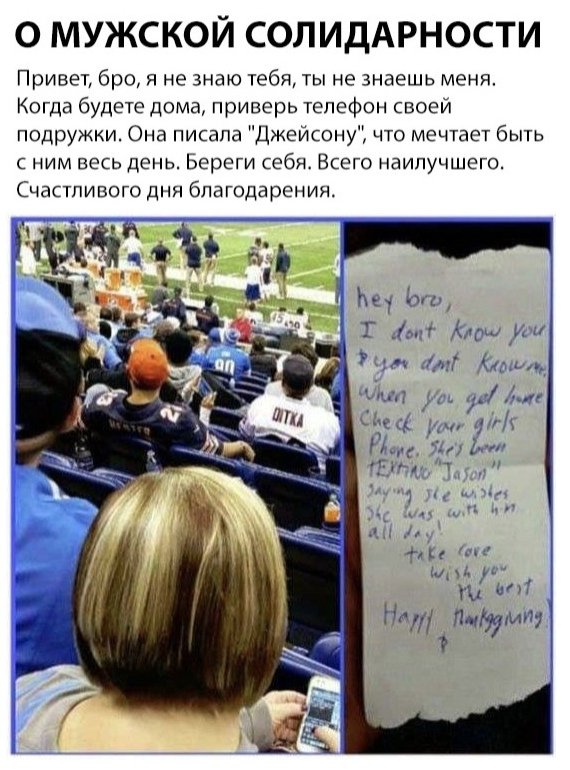 О МУЖСКОЙ СОЛИДАРНОСТИ
Привет, бро, я не знаю тебя, ты не знаешь меня.
Когда будете дома, приверь телефон своей
подружки. Она писала "Джейсону", что мечтает быть
с ним весь день. Береги себя. Всего наилучшего.
Счастливого дня благодарения.
90
DITKA
HESTER
hey bro,
I dont know you
& you dont know me
When you get home
Check your girls
Phone. She's been
TEXTING "Jason"
Saying she wishes
She was with him
all day!
take care
Wish you
the best
Happy Thanksgiving!